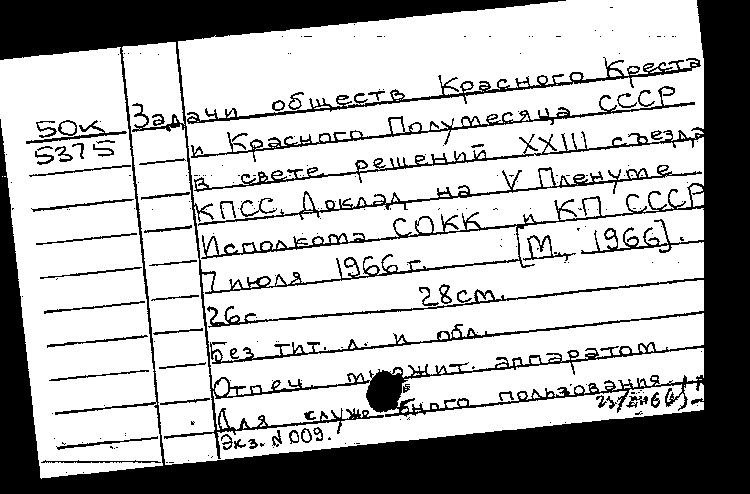 50к
5375
Задачи обществ Красного Креста
и Красного Полумесяца СССР
в свете решений XXIII съезда
КПСС. Доклад на V Пленуме
Исполкома СОКК и КП СССР
7 июля 1966 г. [М., 1966].
26с 28см.
Без тит. л. и обл.
Отпеч. множит. аппаратом.
Для служебного пользования.
Экз. №009.